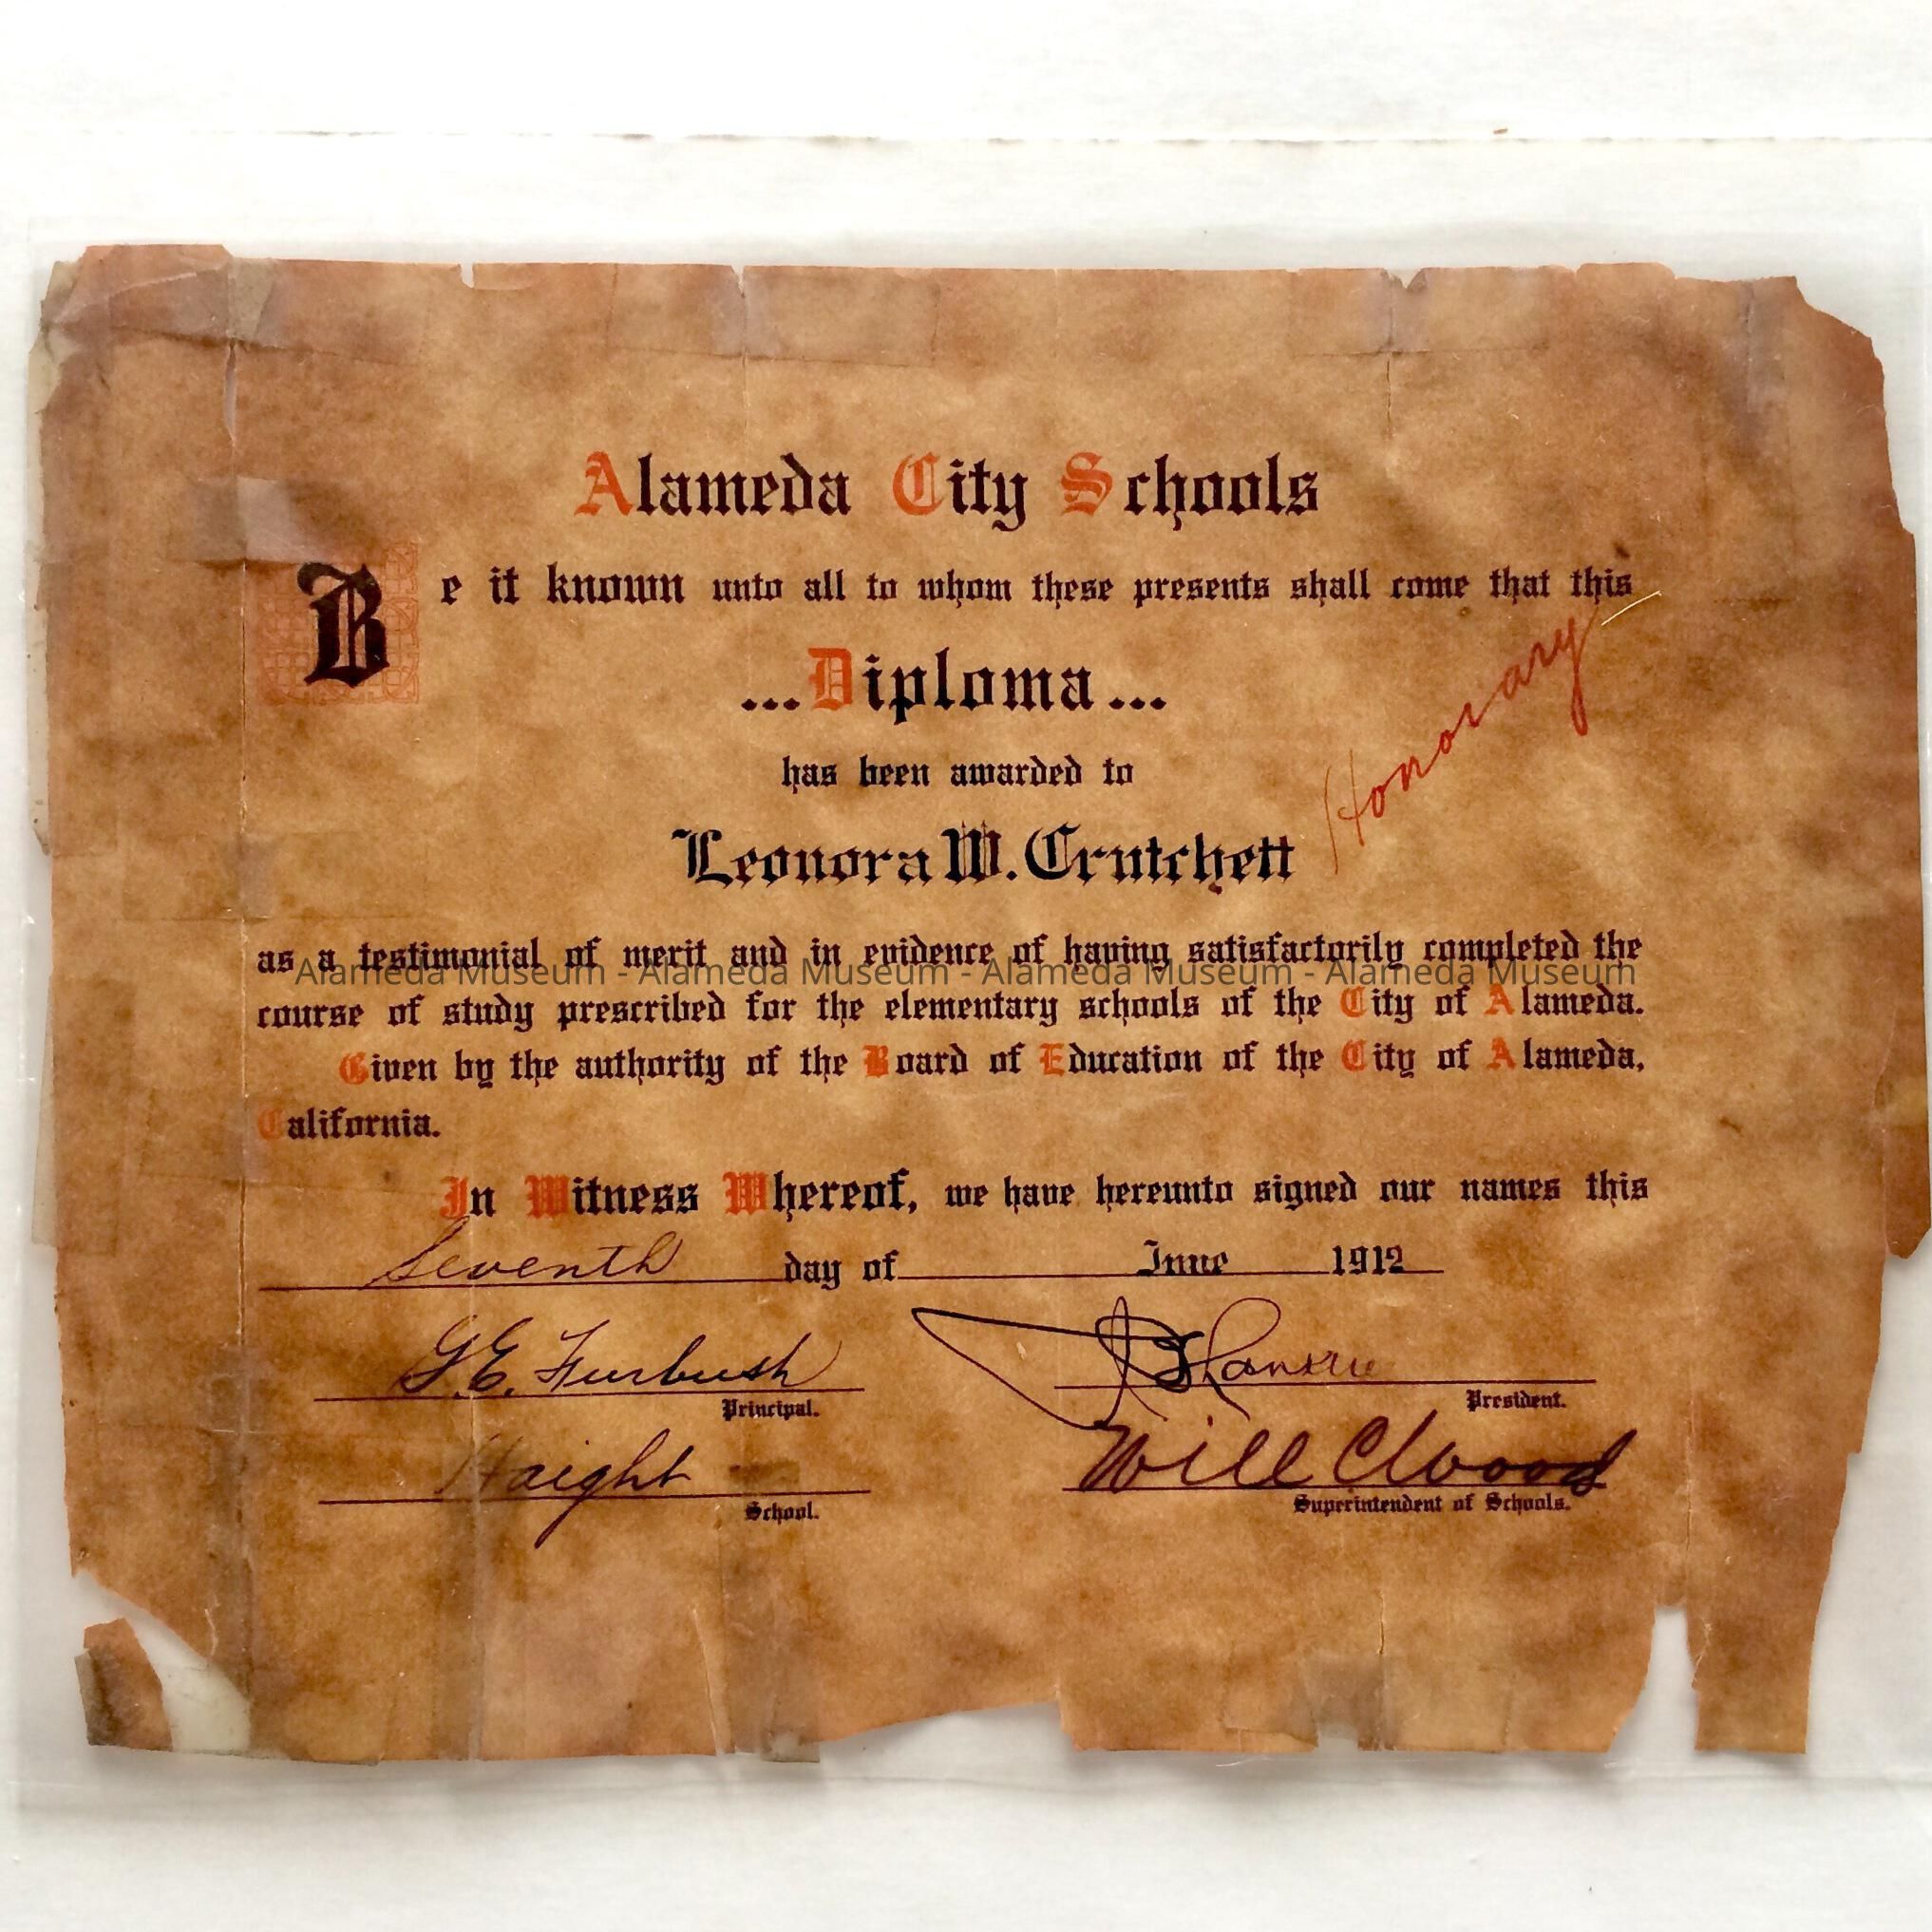 Alameda City Schools
Be it known unto all to whom these presents shall come that this
...Diploma...
Honorary
has been awarded to
Leonora W. Crutchett
as a testimonial of merit and in evidence of having satisfactorily completed the
Alameda Museum - Alameda Museum - Alameda Museum - Alameda Museum
course of study prescribed for the elementary schools of the City of Alameda.
Given by the authority of the Board of Education of the City of Alameda,
California.
In Witness Whereof, we have hereunto signed our names this
Seventh day of June 1912
G. E. Furbush
Principal. President.
Haight Will C Wood
School. Superintendent of Schools.